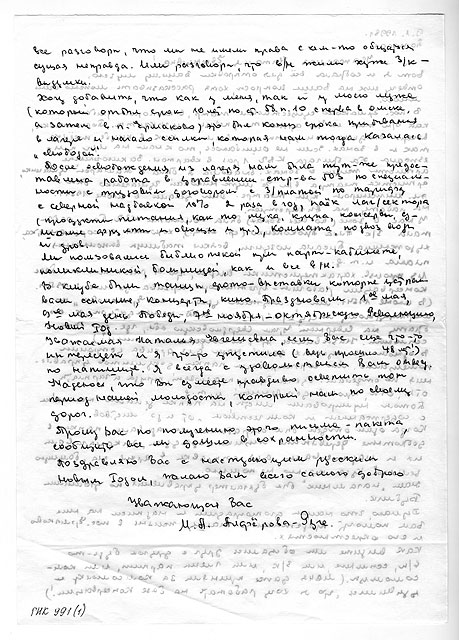 все разговоры, что мы не имели права с кем-то общаться
сущая неправда. Или разговоры что в/н жили хуже З/к -
выдумки.
Хочу добавить, что как у меня, так и у моего мужа
(который отбыл срок 10 лет по ст. 58 п. 10 сперва в Омске,
а затем в п. Ермаково) это был конец срока пребывания
в лагере и начало ссылки которая нам тогда казалась
"свободой".
После освобождения из лагеря нам была тут-же предос-
тавлена работа в управлении стр-ва 503 по специаль-
ности с трудовым договором с з/платой по тарифу
с северной надбавкой 10% 2 раза в год, пайк
(продукты питания, как то мука крупа, консервы, су-
шоные фрукты и овощи и пр.), комната, подвоз воды
и дров.
Мы пользовались библиотекой при парт-кабинете
поликлиникой, больницей, как и все в/н.
В клубе были танцы, фото-выставки которые устраи-
вали ссыльные, концерты, кино. Праздновали 1ое мая,
9ое мая день Победы, 7ое ноября - октябрьскую Революцию,
Новый Год
Уважаемая Наталия, если Вас еще что-то
интересует и я что-то упустила (ведь прошло 48 лет)
то напишите. Я всегда с удовольствием Вам отвечу.
Надеюсь, что Вы сумеете правдиво осветить тот
период нашей молодости, который нам по своему
дорог.
Прошу Вас по получению этого письма - пакета,
сообщить все ли дошло в сохранности.
Поздравляю Вас с наступающим русским
Новым Годом, желаю Вам всего самого доброго
Уважающая Вас
М. А.
РИК 991(1)